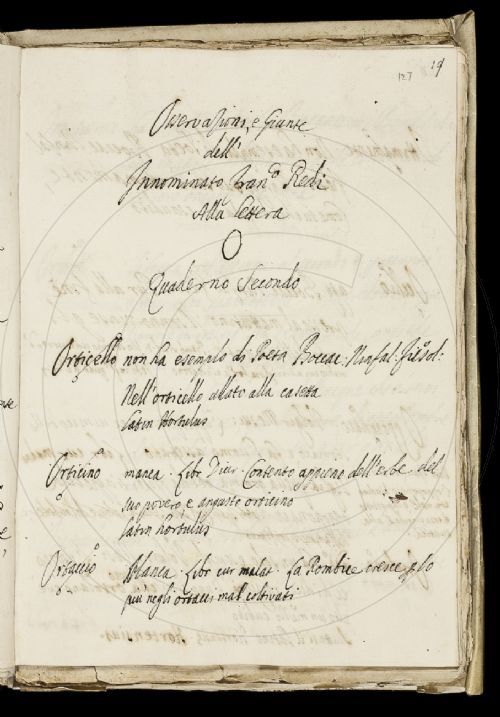 19
127
Osservazioni, e Giunte
dell'
Innominato Fran.º Redi
Alla Lettera
O
Quaderno Secondo
Orticello non ha esempio di Poeta Boccac. Ninfal. Fiesol:
Nell'orticello allato alla casetta
Latin Hortulus
Orticino manca. Libr Dicer. Contento appieno dell'erbe del
suo povero e angusto orticino
latin hortulus
Ortaccio Manca. Libr cur malat. La Rombice cresce p lo
piu negli ortacci mal coltivati